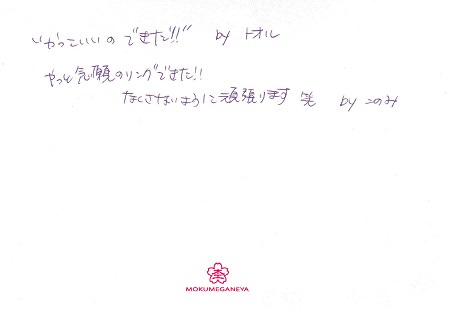 "かっこいいの できた!!" by トオル
やっと念願のリングできた!!
なくさないように頑張ります 笑 by このみ
杢
MOKUMEGANEYA